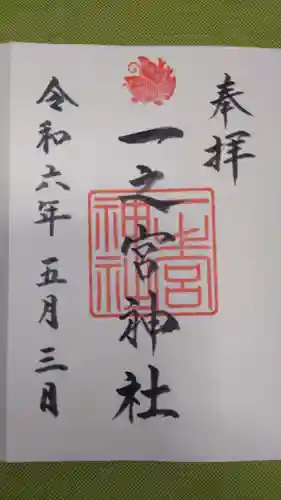 奉拝
一之宮神社
一之宮
神社
令和六年五月三日